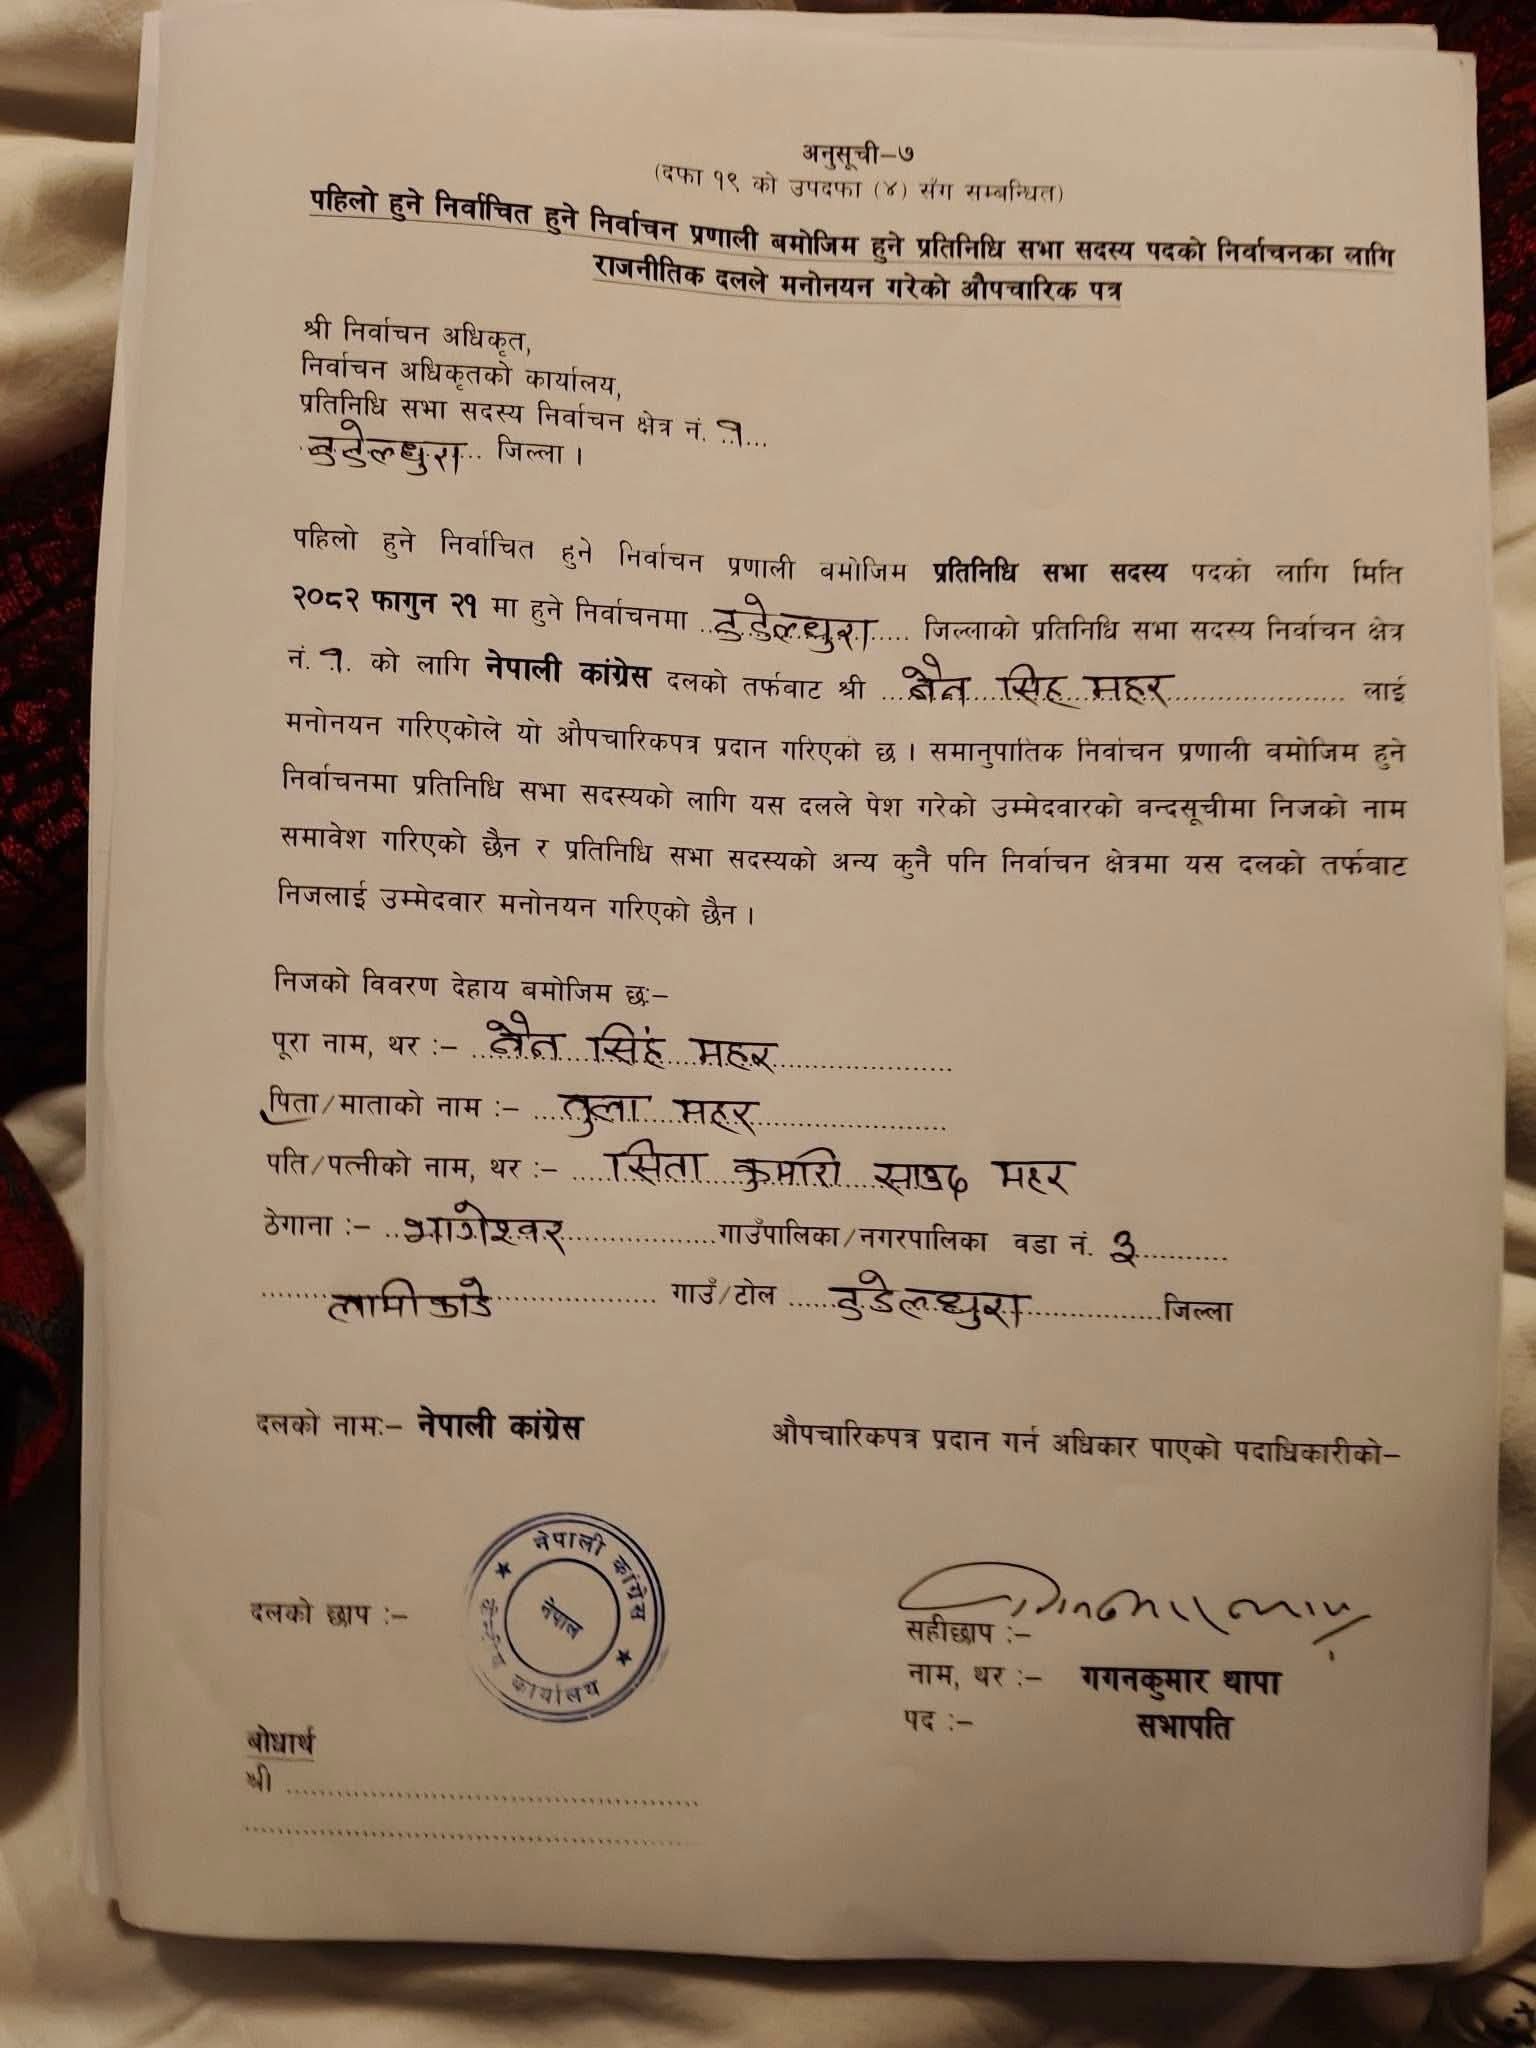 अनुसूची-७
(दफा १९ को उपदफा (४) सँग सम्बन्धित)
पहिलो हुने निर्वाचित हुने निर्वाचन प्रणाली बमोजिम हुने प्रतिनिधि सभा सदस्य पदको निर्वाचनका लागि
राजनीतिक दलले मनोनयन गरेको औपचारिक पत्र
श्री निर्वाचन अधिकृत,
निर्वाचन अधिकृतको कार्यालय,
प्रतिनिधि सभा सदस्य निर्वाचन क्षेत्र नं. १...
डडेल्धुरा... जिल्ला ।
पहिलो हुने निर्वाचित हुने निर्वाचन प्रणाली बमोजिम प्रतिनिधि सभा सदस्य पदको लागि मिति
२०८२ फागुन २१ मा हुने निर्वाचनमा ..डडेल्धुरा..... जिल्लाको प्रतिनिधि सभा सदस्य निर्वाचन क्षेत्र
नं. १. को लागि नेपाली कांग्रेस दलको तर्फबाट श्री ...नैन सिंह महर............ लाई
मनोनयन गरिएकोले यो औपचारिकपत्र प्रदान गरिएको छ । समानुपातिक निर्वाचन प्रणाली बमोजिम हुने
निर्वाचनमा प्रतिनिधि सभा सदस्यको लागि यस दलले पेश गरेको उम्मेदवारको बन्दसूचीमा निजको नाम
समावेश गरिएको छैन र प्रतिनिधि सभा सदस्यको अन्य कुनै पनि निर्वाचन क्षेत्रमा यस दलको तर्फबाट
निजलाई उम्मेदवार मनोनयन गरिएको छैन ।
निजको विवरण देहाय बमोजिम छः-
पूरा नाम, थर :- ..नैन सिंह महर............
पिता/माताको नाम :- ....तुला महर............
पति/पत्नीको नाम, थर :- .....सिता कुमारी साउद महर
ठेगाना :- ..भागेश्वर............गाउँपालिका/नगरपालिका वडा नं. ३.........
.........लामीकाडे............ गाउँ/टोल ......डडेल्धुरा............जिल्ला
दलको नामः- नेपाली कांग्रेस
औपचारिकपत्र प्रदान गर्न अधिकार पाएको पदाधिकारीको-
दलको छाप :-
नेपाली कांग्रेस
नेपाल
केन्द्रीय कार्यालय
सहीछाप :-
नाम, थर :- गगनकुमार थापा
पद :- सभापति
बोधार्थ
श्री ............................................
............................................